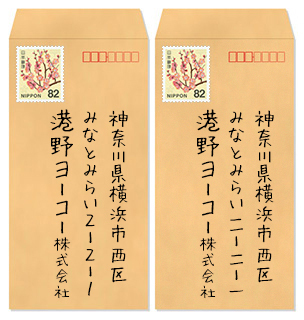 日本郵便
NIPPON 82
神奈川県横浜市西区
みなとみらい2-2-1
港野ヨーコー株式会社
日本郵便
NIPPON 82
神奈川県横浜市西区
みなとみらい二-二-一
港野ヨーコー株式会社